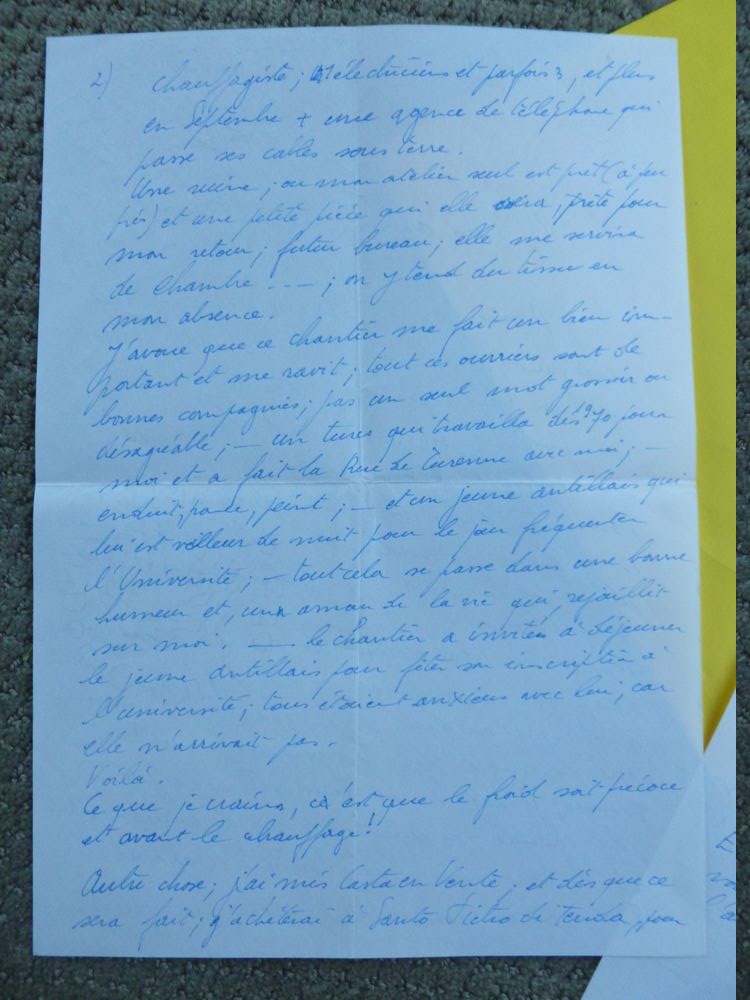 2) chauffagiste; électriciens et parfois 3, et plus
en Septembre + une agence de téléphone qui
passe ses cables sous terre.
Une ruine; ou mon atelier seul est prêt (à peu
près) et une petite pièce qui elle sera, prête pour
mon retour; futur bureau; elle me servira
de Chambre ---; on y tend du tissu en
mon absence.
J'avoue que ce chantier me fait un bien im-
portant et me ravit; tout ces ouvriers sont de
bonnes compagnies; pas un seul mot grossier ou
désagéable; — un turc qui travailla dès 1970 pour
moi et a fait la Rue de Turenne avec moi; —
enduit, ponce, peint; — et un jeune antillais qui
lui est veilleur de nuit pour le jour fréquenter
l'Université; — tout cela se passe dans une bonne
humeur et, un amour de la vie qui, rejaillit
sur moi. — le chantier a invité à déjeuner
le jeune antillais pour fêter son inscription à
l'université; tous étaient anxieux avec lui; car
elle n'arrivait pas.
Voilà.
Ce que je crains, c'est que le froid soit précoce
et avant le chauffage!
Autre chose; j'ai mis Casta en Vente; et dès que ce
sera fait; j'achèterai à Santo Pietro di Tenda pour